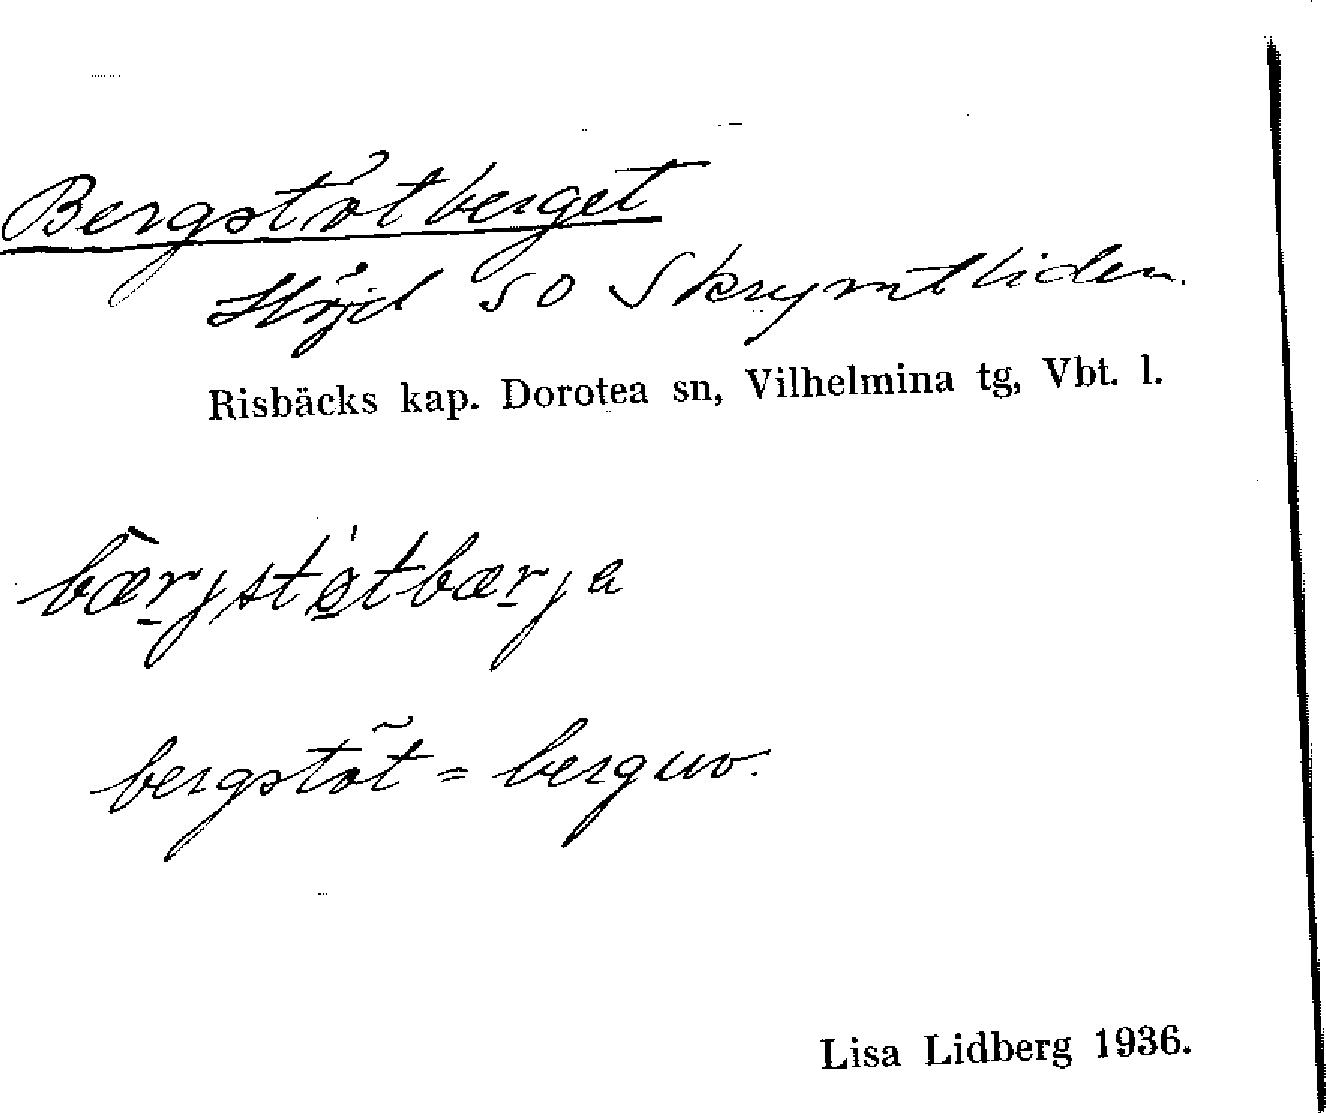 Bergstötberget
Höjd SO Skrymtliden.
Risbäcks kap. Dorotea sn, Vilhelmina tg, Vbt. l.
bergstöt = berguv.
Lisa Lidberg 1936.